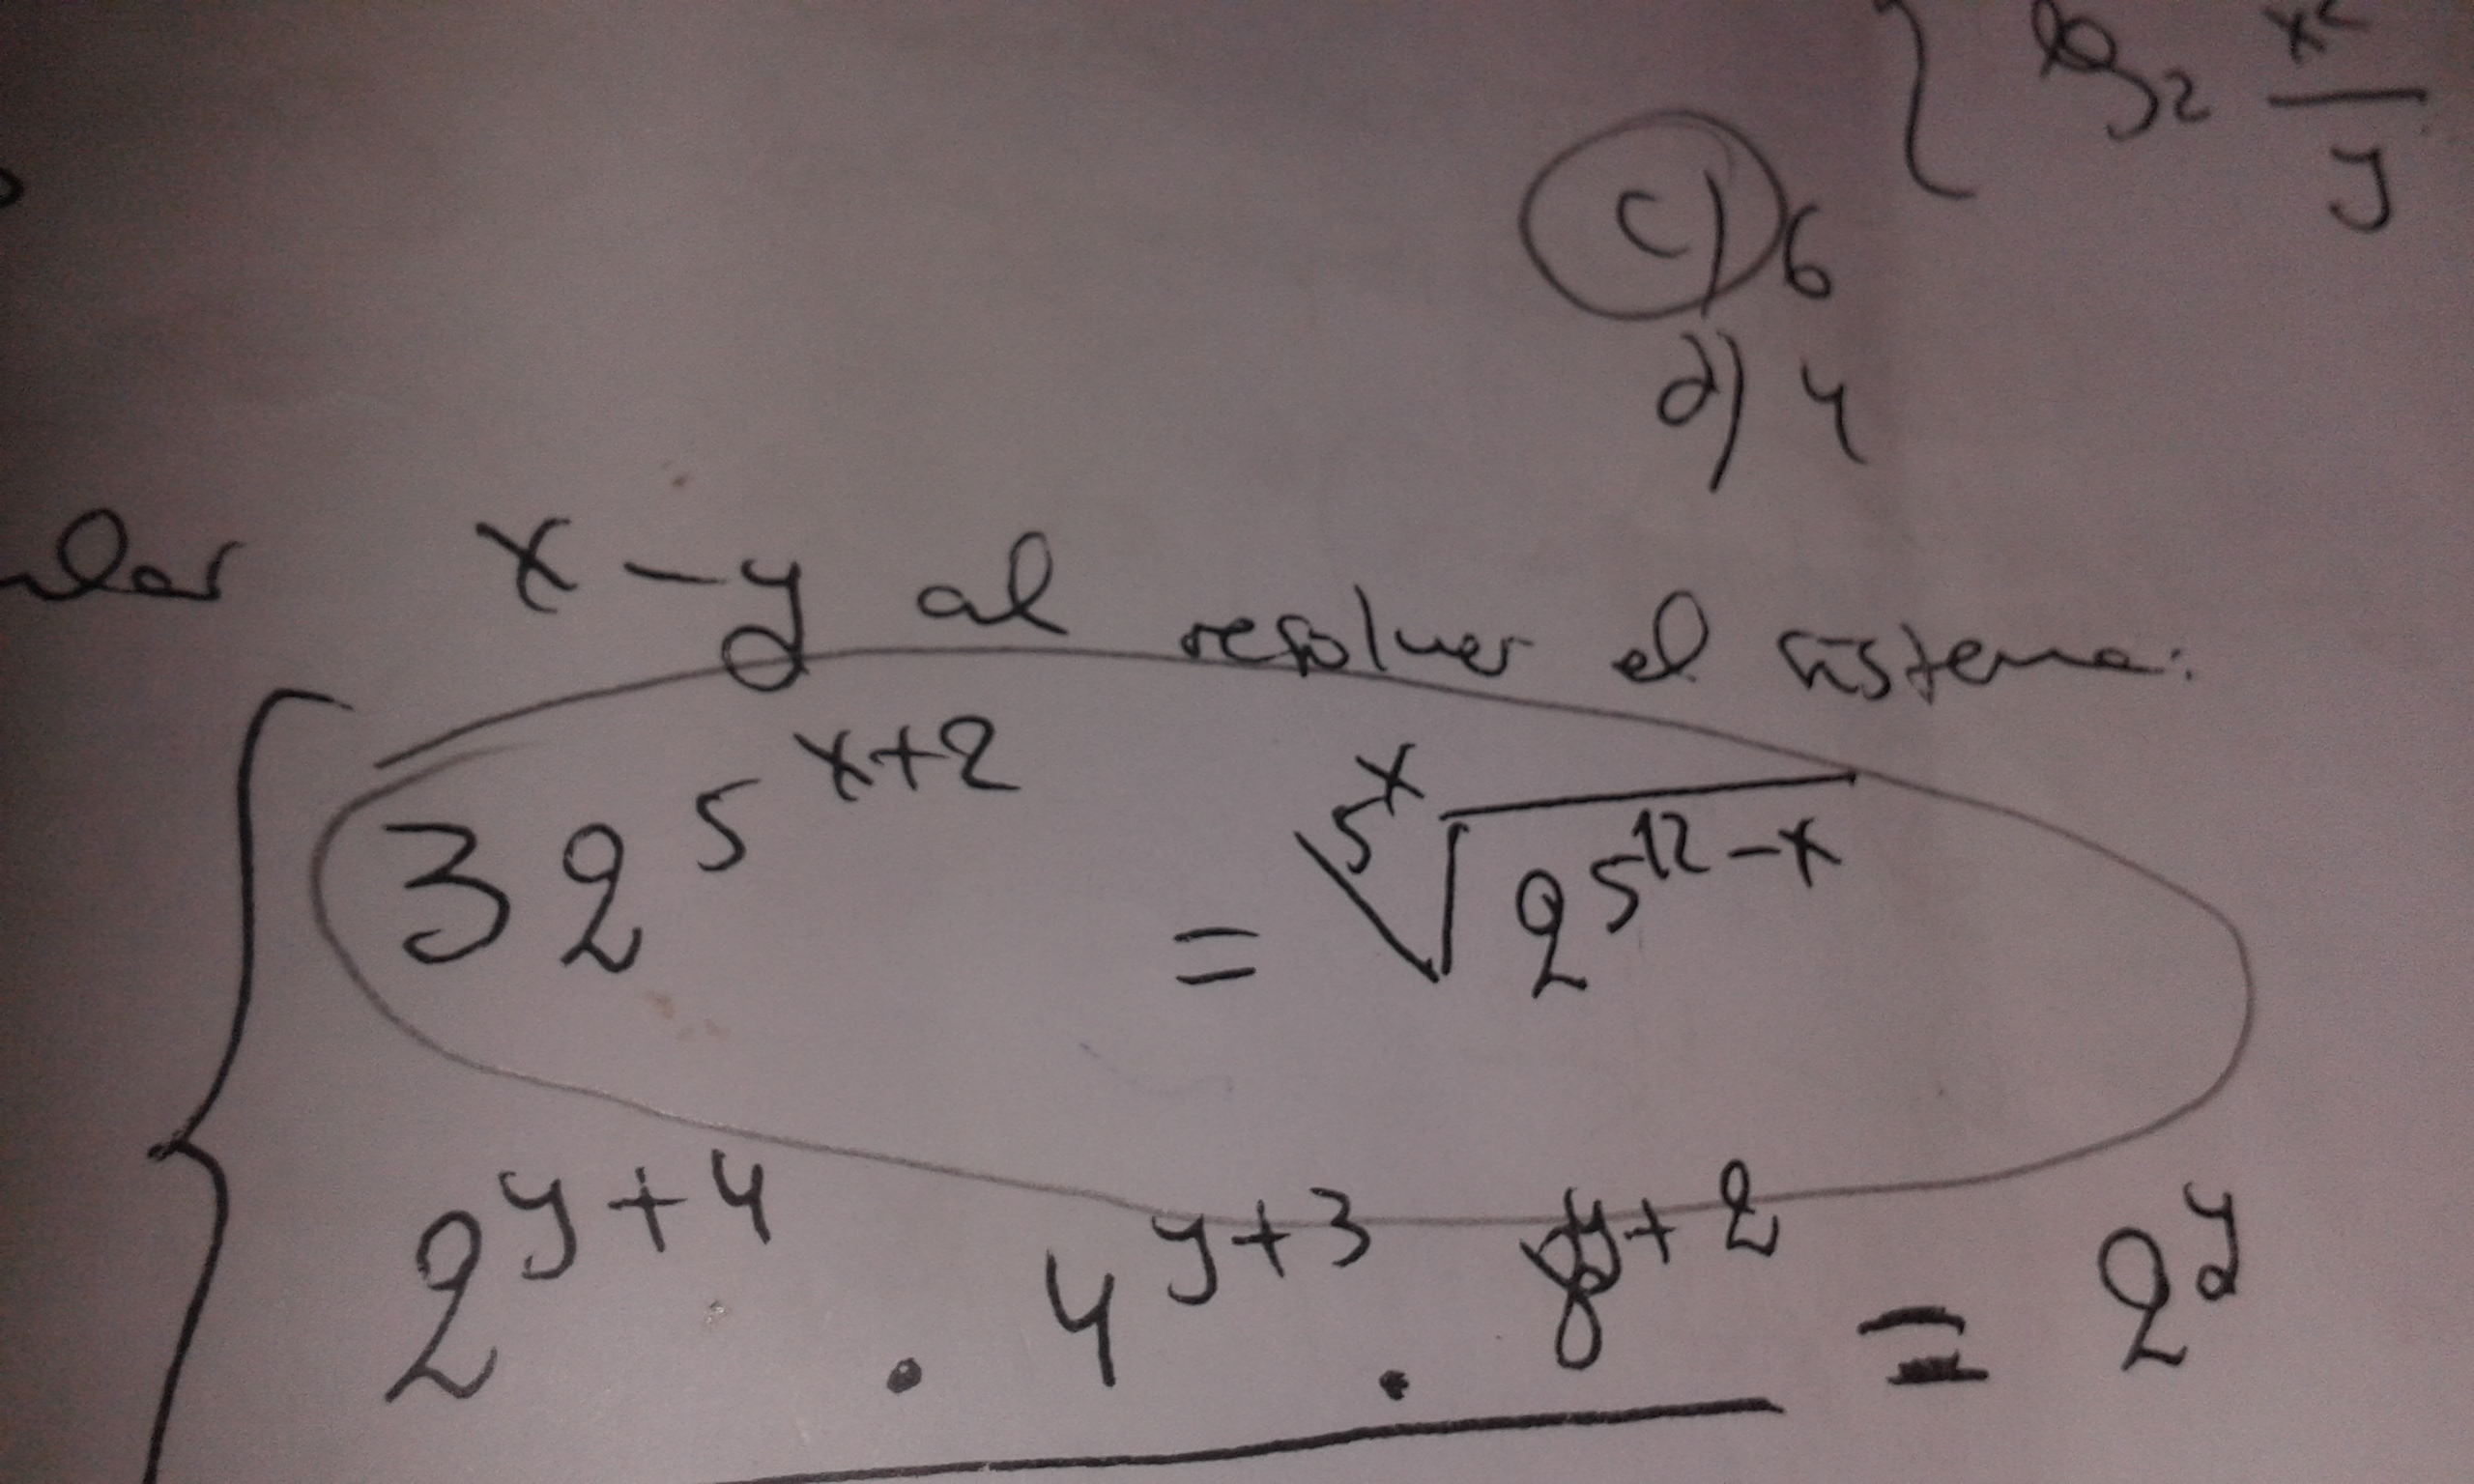 log₂ x²/y
c) 6
d) 4
x – y al resolver el sistema:
32^5^(x+2) = ^(5^x)√(2^5^(12–x))
2^(y+4) . 4^(y+3) . 8^(y+2) = 2^y